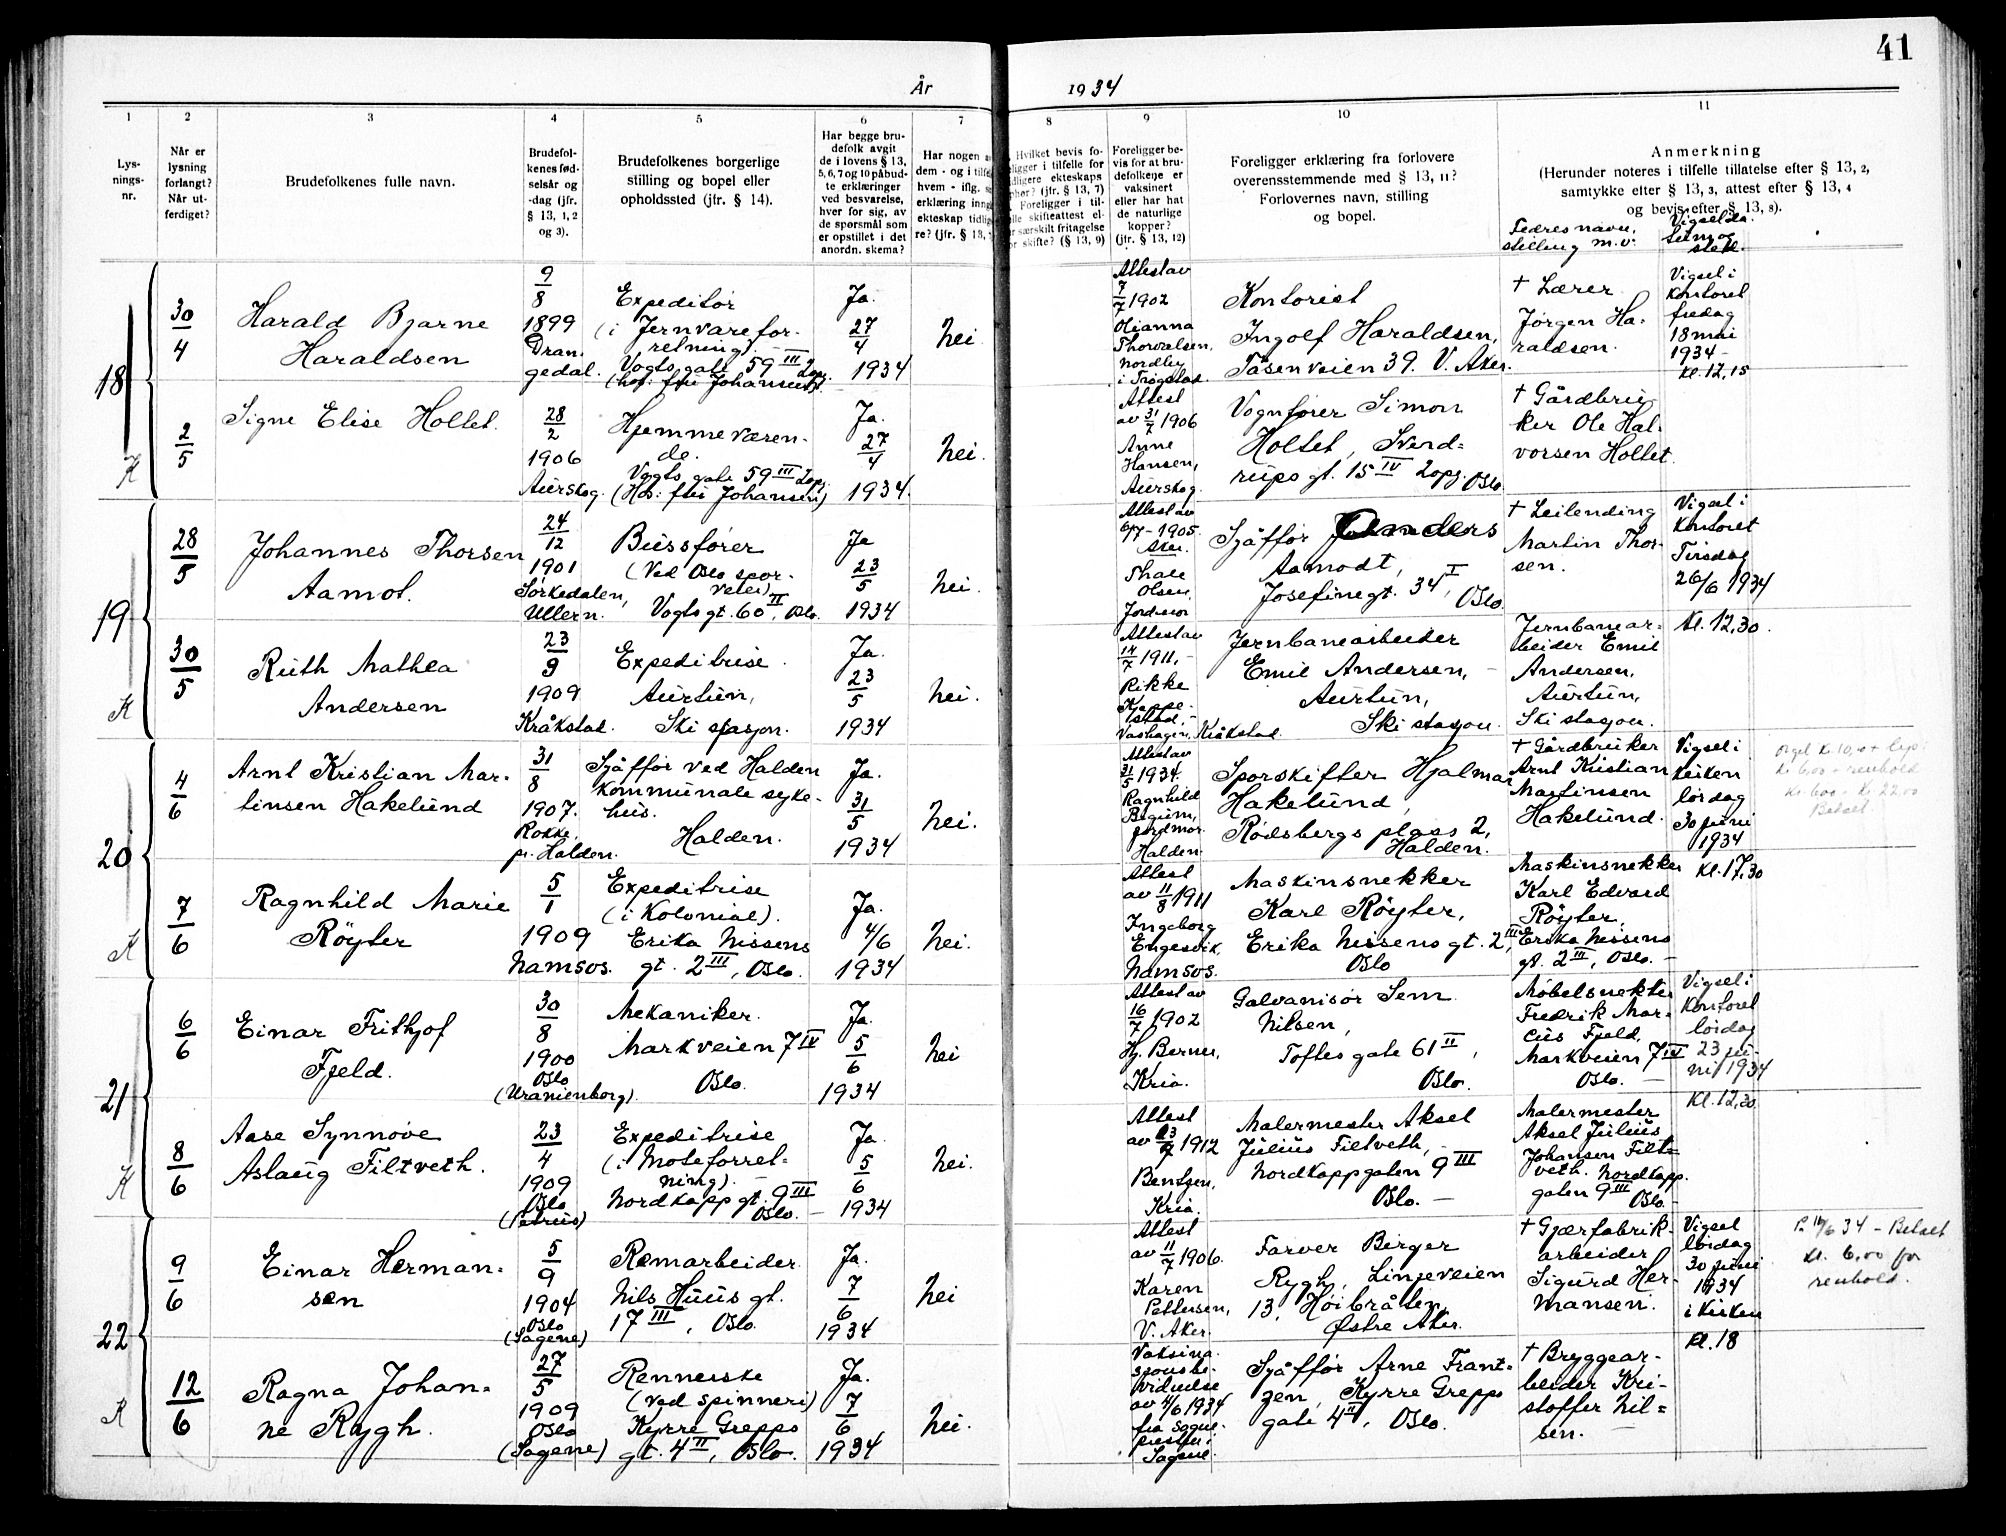 41
År 1934
1
2
3
4
5
6
7
8
9
10
11
Lys-
nings-
nr.
Når er
lysning
forlangt?
Når ut-
ferdiget?
Brudefolkenes fulle navn.
Brudefol-
kenes fød-
selsår og
-dag (jfr.
§ 13, 1, 2
og 3).
Brudefolkenes borgerlige
stilling og bopel eller
opholdssted (jfr. § 14).
Har begge bru-
defolk avgit
de i lovens § 13,
5, 6, 7 og 10 påbud-
te erklæringer
ved besvarelse,
hver for sig, av
de spørsmål som
er opstillet i det
anordn. skema?
Har nogen
dem - og i tilf
hvem - iflg.
erklæring inng
ekteskap tidlig
re? (jfr. § 13,
Hvilket bevis fo-
ligger i tilfelle for
dligere ekteskaps
phør? (jfr. § 13, 7)
Foreligger i til-
lle skifteattest el-
r særskilt fritagelse
r skifte? (§ 13, 9)
Foreligger be-
vis for at bru-
defolkene er
vaksinert
eller har hat
de naturlige
kopper?
(jfr. § 13, 12)
Foreligger erklæring fra forlovere
overensstemmende med § 13, 11?
Forlovernes navn, stilling
og bopel.
Anmerkning
(Herunder noteres i tilfelle tillatelse efter § 13, 2,
samtykke efter § 13, 3, attest efter § 13, 4
og bevis efter § 13, 8).
Fedres navn,
stilling m.v.
Vigselda.
tum og
sted.
18
K
30/4
Harald Bjarne
Haraldsen
9/8
1899
Dran.
gedal.
Expeditør
(i Jernvarefor-
retning).
Vogts gate 59 III 2opg.
(hos fru Johansen).
Ja.
27/4
1934
Nei
Attest av
7/7 1902
Olianna
Thorvalsen,
Nordby
i Trøgstad.
Kontorist
Ingolf Haraldsen,
Tåsenveien 39. V. Aker.
† Lærer
Jørgen Ha-
raldsen.
Vigsel i
Kontoret
fredag
18 mai
1934 -
kl. 12,15
2/5
Signe Elise Holtet.
28/2
1906
Aurskog.
Hjemmeværen-
de.
Vogts gate 59 III 2opg.
(Hos frú Johansen)
Ja.
27/4
1934.
Nei.
Attest
av 31/7 1906
Anne
Hansen,
Aurskog.
Vognfører Simon
Holtet, Sverd=
rups gt. 15 IV 2opg. Oslo.
† Gårdbru-
ker Ole Hal-
vorsen Holtet.
19
K
28/5
Johannes Thorsen
Aamot.
24/12
1901
Sørkedalen,
Ullern.
Bussfører
(Ved Oslo spor-
veier)
Vogts gt. 60 II, Oslo.
Ja
23/5
1934
Nei.
Attest av
6/7 - 1905.
Aker.
Thale
Olsen,
Jordmor
Sjåffør Anders
Aamodt,
Josefinegt. 34 I, Oslo.
† Leilending
Martin Thor-
sen.
Vigsel i
Kontoret
Tirsdag
26/6 1934
kl. 12,30.
30/5
Ruth Mathea
Andersen
23/9
1909
Kråkstad.
Expeditrise.
Aurtun,
Ski stasjon.
Ja.
23/5
1934
Nei.
Attest av
14/7 1911, -
Rikke
Kappe-
stad, -
Vashagen, Kråkstad.
Jernbanearbeider
Emil Andersen, -
Aurtun,
Ski stasjon.
Jernbanear-
beider Emil
Andersen,
Aurtun,
Ski stasjon.
20
K
4/6
Arnt Kristian Mar-
tinsen Hakelund
31/8
1907.
Rokke.
pr. Halden.
Sjåffør ved Halden
kommunale syke-
hus.
Halden.
Ja.
31/5
1934
Nei.
Attest av
31/5 1934.
Ragnhild
jordmor.
Halden.
Sporskifter Hjalmar
Hakelund,
Rødsbergs plass 2,
Halden.
† Gårdbruker
Arnt Kristian
Martinsen
Hakelund.
Vigsel i
kirken
lørdag
30 juni
1934
kl. 17,30
Orgel kr 10,00 +
kr 6.00 - renhold
kr. 6.00 - kr. 22.00
Betalt.
7/6
Ragnhild Marie
Røyter
5/1
1909
Namsos.
Expeditrise
(i Kolonial).
Erika Nissens
gt. 2 III, Oslo.
Ja.
4/6
1934
Nei.
Attest
av 11/8 1911
Ingeborg
Engesvik,
Namsos.
Maskinsnekker
Karl Røyter,
Erika Nissens gt. 2 III,
Oslo
Maskinsnekker
Karl Edvard
Røyter,
Erika Nissens
gt. 2 III, Oslo. -
21
K
6/6
Einar Frithjof
Fjeld.
30/8
1900
Oslo
(Uranienborg).
Mekaniker.
Markveien 7 IV
Oslo.
Ja.
5/6
1934
Nei
Attest av
16/7 1902
Hj. Berner,
Kria.
Galvanisør Sem
Nilsen,
Toftes gate 61 II,
Oslo.
Møbelsnekker
Fredrik Mar-
cus Fjeld,
Markveien 7 IV
Oslo. -
Vigsel i
Kontoret
lørdag
23 ju-
ni 1934
Kl. 12,30.
8/6
Aase Synnøve
Aslaug Filtveth.
23/4
1909
Oslo
(Petrus)
Expeditrise
(i Moteforret-
ning). -
Nordkappgt. 9 III
Oslo. -
Ja.
5/6
1934
Nei.
Attest
av 23/7 1912
Bentzen,
Kria.
Malermester Aksel
Julius Filtveth, -
Nordkappgaten 9 III
Oslo. -
Malermester
Aksel Julius
Johansen Filt=
veth. Nordkapp.
gaten 9 III
Oslo -
22
K
9/6
Einar Herman-
sen
5/9
1904
Oslo
(Sagene)
Remarbeider.
Nils Huus gt.
17 III, Oslo.
Ja.
7/6
1934
Nei
Attest
av 11/7 1906.
Karen
Pettersen,
V. Aker.
Farver Birger
Rygh, Linjeveien
13, Høibråten,
Østre Aker.
† Gjærfabrik-
arbeider
Sigurd Her-
mansen.
Vigsel
lørdag
30 juni
1934
i kirken
kl. 18
P. 16/6 34 - Betalt
kr. 6,00 for
renhold.
12/6
Ragna Johan=
ne Rygh.
27/5
1909
Oslo
(Sagene)
Rennerske
(ved spinneri)
Kyrre Grepps
gt. 4 II, Oslo.
Ja.
7/6
1934
Nei.
Vaksina-
sjonsbe-
vidnelse
av 4/6 1934
fra Sogne-
presten i
Sagene.
Sjåffør Arne Frant=
zen, Kyrre Grepps
gate 4 II, Oslo.
† Bryggear-
beider Kri-
stoffer Nil=
sen. -